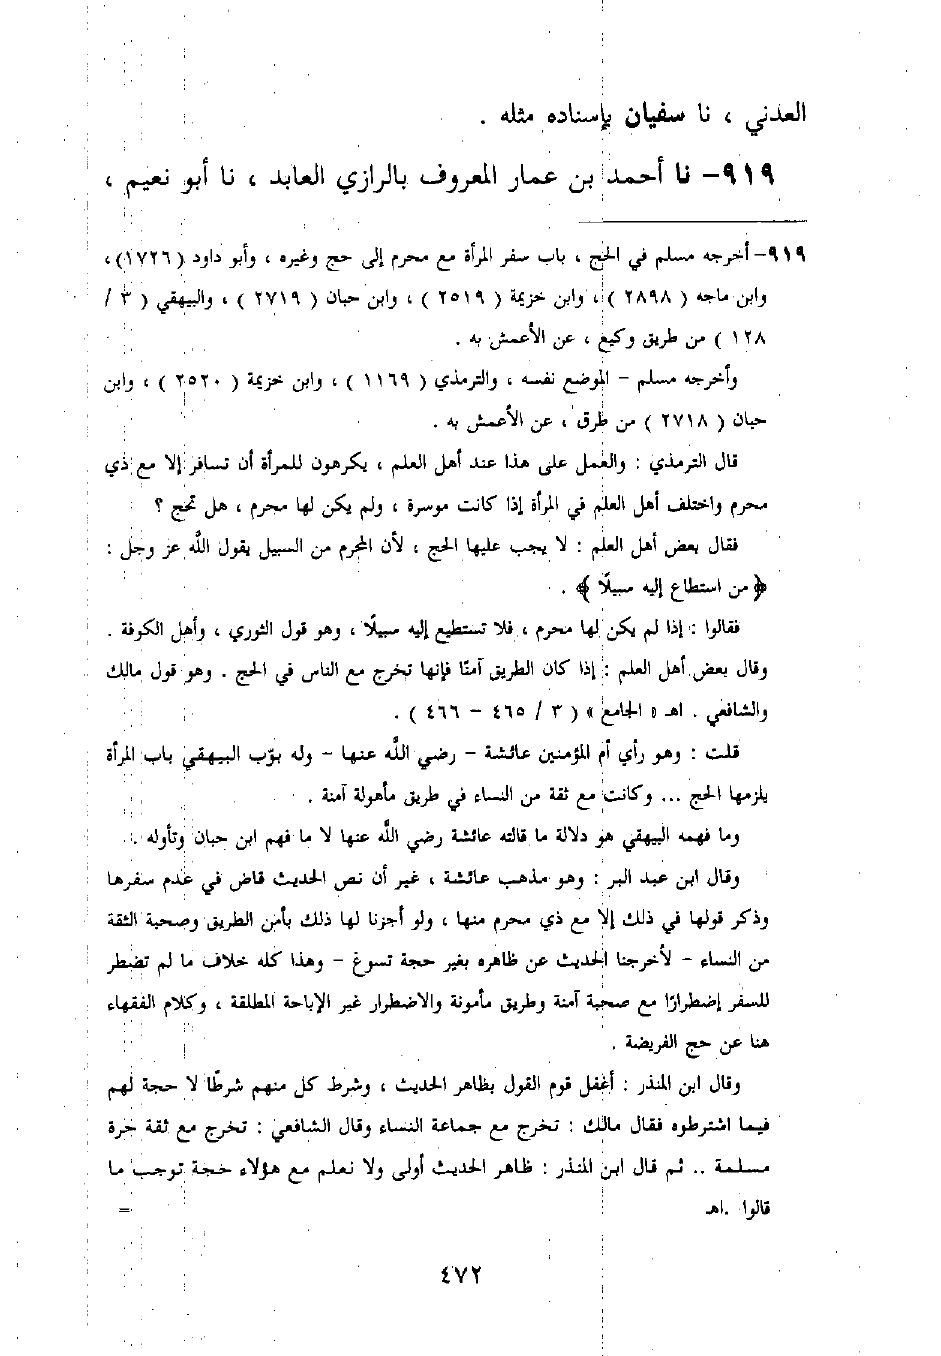 العدني ، نا سفيان بإسناده مثله .
٩١٩- نا أحمد بن عمار المعروف بالرازي العابد ، نا أبو نعيم ،
٩١٩- أخرجه مسلم في الحج ، باب سفر المرأة مع محرم إلى حج وغيره ، وأبو داود ( ١٧٢٦) ،
وابن ماجه ( ٢٨٩٨ ) ، وابن خزيمة ( ٢٥١٩ ) ، وابن حبان ( ٢٧١٩ ) ، والبيهقي ( ٣ /
١٢٨ ) من طريق وكيع ، عن الأعمش به .
وأخرجه مسلم - الموضع نفسه ، والترمذي ( ١١٦٩ ) ، وابن خزيمة ( ٢٥٢٠ ) ، وابن
حبان ( ٢٧١٨ ) من طرق ، عن الأعمش به .
قال الترمذي : والعمل على هذا عند أهل العلم ، يكرهون للمرأة أن تسافر إلا مع ذي
محرم واختلف أهل العلم في المرأة إذا كانت موسرة ، ولم يكن لها محرم ، هل تحج ؟
فقال بعض أهل العلم : لا يجب عليها الحج ، لأن المحرم من السبيل يقول اللَّه عز وجل :
﴿ من استطاع إليه سبيلًا ﴾ .
فقالوا : إذا لم يكن لها محرم ، فلا تستطيع إليه سبيلًا ، وهو قول الثوري ، وأهل الكوفة .
وقال بعض أهل العلم : إذا كان الطريق آمنًا فإنها تخرج مع الناس في الحج . وهو قول مالك
والشافعي . اهـ « الجامع » ( ٣ / ٤٦٥ - ٤٦٦ ) .
قلت : وهو رأي أم المؤمنين عائشة - رضي اللَّه عنها - وله بوّب البيهقي باب المرأة
يلزمها الحج ... وكانت مع ثقة من النساء في طريق مأهولة آمنة .
وما فهمه البيهقي هو دلالة ما قالته عائشة رضي اللَّه عنها لا ما فهم ابن حبان وتأوله .
وقال ابن عبد البر : وهو مذهب عائشة ، غير أن نص الحديث قاض في عدم سفرها
وذكر قولها في ذلك إلا مع ذي محرم منها ، ولو أجزنا لها ذلك بأمن الطريق وصحبة الثقة
من النساء - لأخرجنا الحديث عن ظاهره بغير حجة تسوغ - وهذا كله خلاف ما لم تضطر
للسفر إضطرارًا مع صحبة آمنة وطريق مأمونة والاضطرار غير الإباحة المطلقة ، وكلام الفقهاء
هنا عن حج الفريضة .
وقال ابن المنذر : أغفل قوم القول بظاهر الحديث ، وشرط كل منهم شرطًا لا حجة لهم
فيما اشترطوه فقال مالك : تخرج مع جماعة النساء وقال الشافعي : تخرج مع ثقة حرة
مسلمة .. ثم قال ابن المنذر : ظاهر الحديث أولى ولا نعلم مع هؤلاء حجة توجب ما
قالوا .اهـ =
٤٧٢